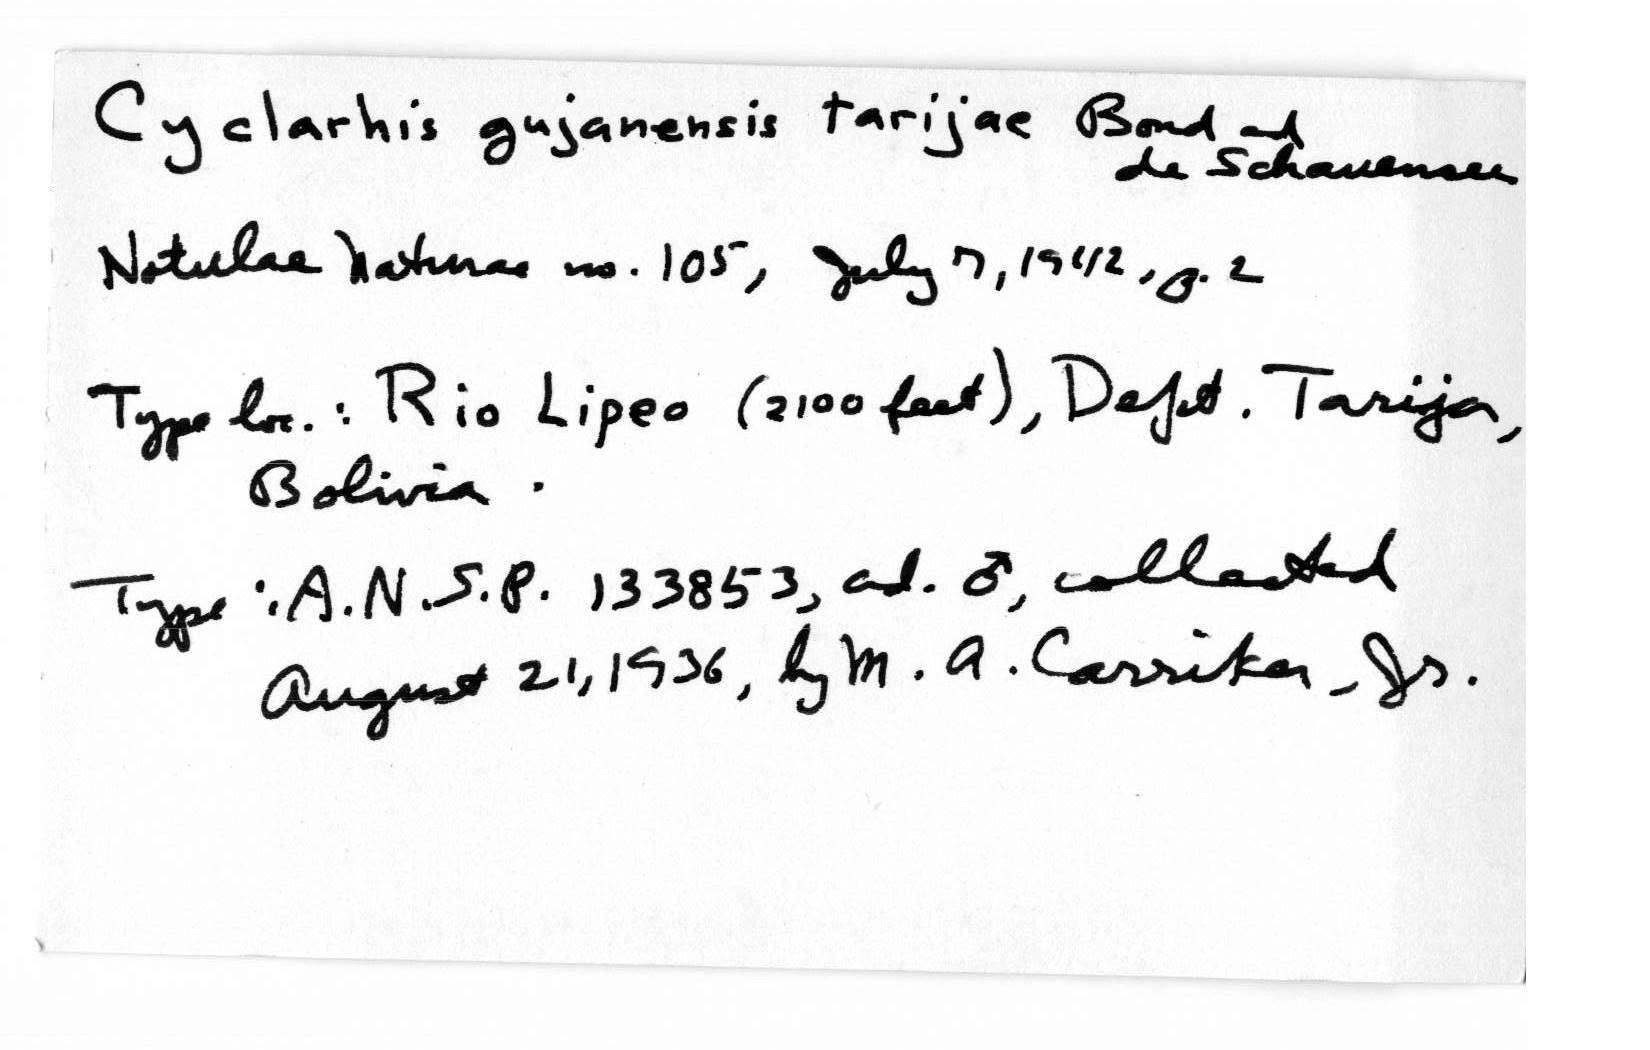 Cyclarhis gujanensis tarijae Bond and
de Schauensee
Notulae Naturae no. 105, July 7, 1942, p. 2
Type loc.: Rio Lipeo (2100 feet), Dept. Tarija,
Bolivia.
Type: A.N.S.P. 133853, ad. ♂, collected
August 21, 1936, by M. A. Carriker, Jr.